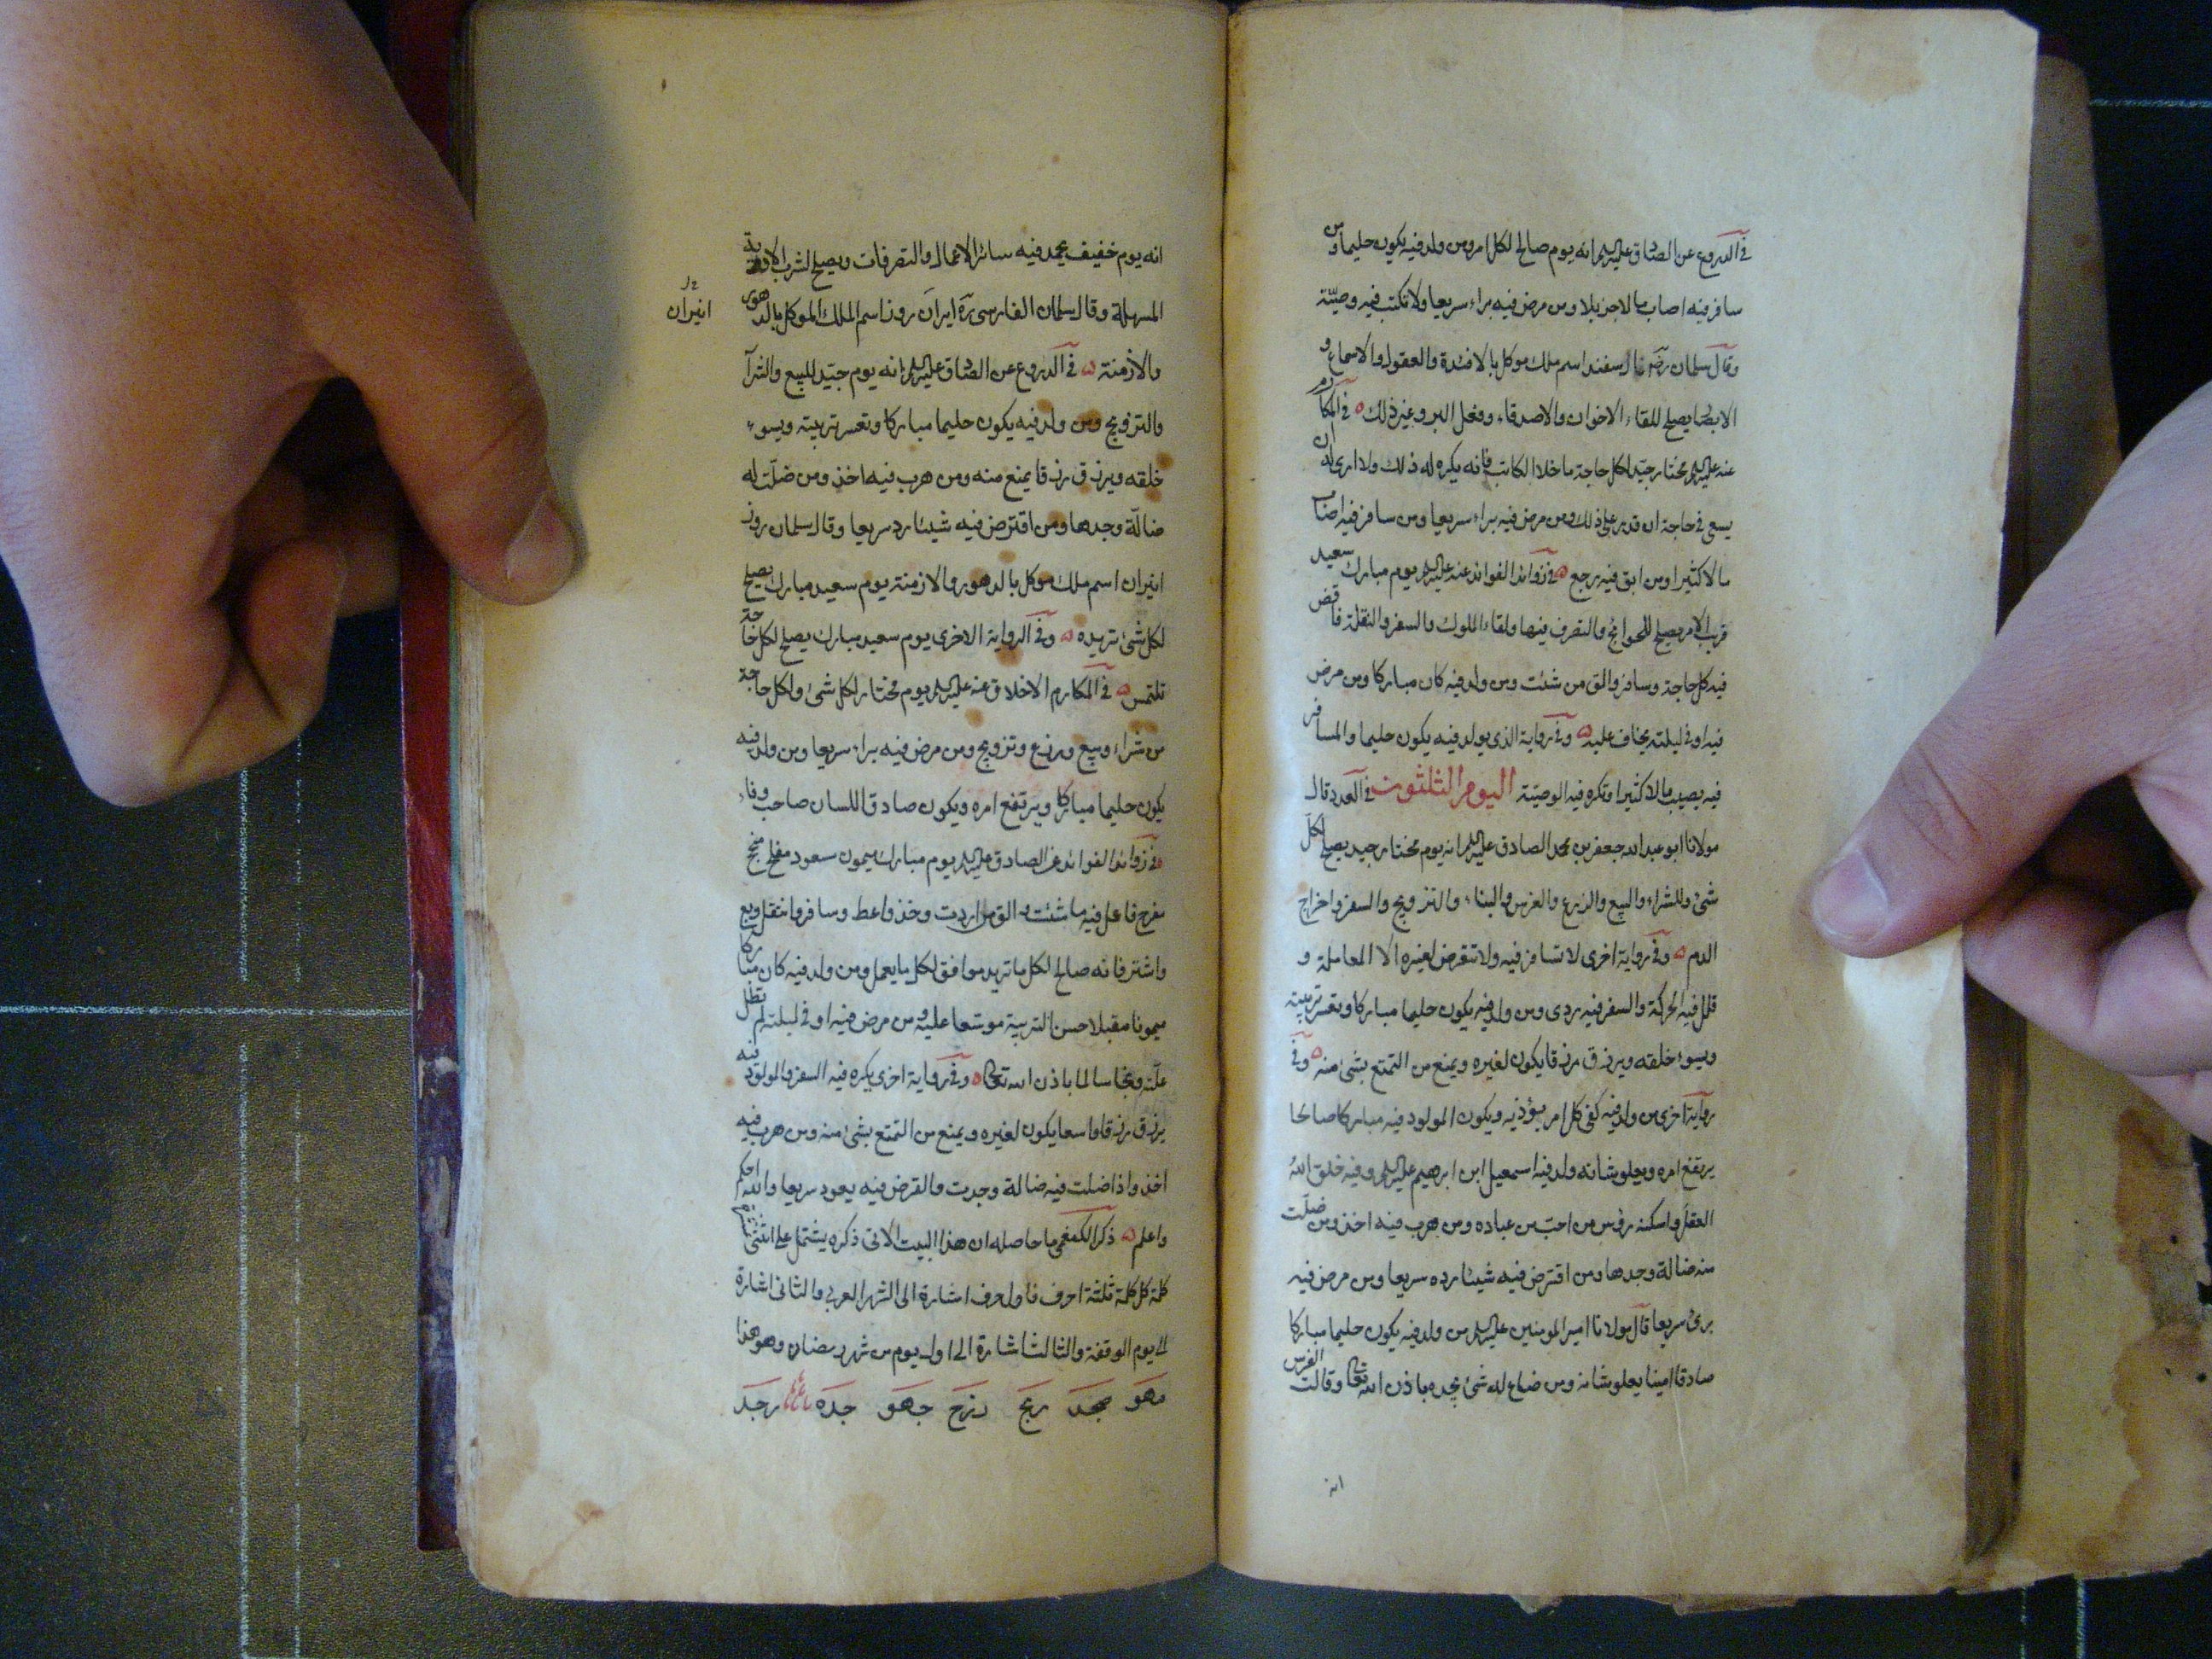 في الدروع عن الصادق عليه السلم انه يوم صالح لكل امر ومن ولد فيه يكون حليما ومن
سافر فيه اصاب مالا جزيلا ومن مرض فيه براء سريعا ولا تكتب فيه وصيّة
وقال سلمان اسفند اسم ملك موكل بالافئدة والعقول والاسماع و
الابصا يصلح للقاء الاخوان والاصدقاء وفعل البر وغير ذلك في المكارم
عنه عليه السلم مختار جيّد لكل حاجة ما خلا الكاتب فانه يكره له ذلك ولا ارى له ان
يسعى في حاجة ان قدر على ذلك ومن مرض فيه براء سريعا ومن سافر فيه اصاب
مالا كثيرا ومن ابق فيه رجع في زوائد الفوائد عنه عليه السلم يوم مبارك سعيد
قريب الامر يصلح للحوائج والتصرف فيها ولقاء الملوك والسفر والنقلة فاقض
فيه كل حاجة وسافر والق من شئت ومن ولد فيه كان مباركا ومن مرض
فيه او في ليلته يخاف عليه وفي رواية الذي يولد فيه يكون حليما والمسافر
فيه يصيب مالا كثيرا وتكره فيه الوصيّة اليوم الثلثون في العدد قال
مولانا ابو عبد الله جعفر بن محمد الصادق عليه السلم انه يوم مختار جيد يصلح لكل
شئ وللشراء والبيع والزرع والغرس والبناء والتزويج والسفر واخراج
الدم وفي رواية اخرى لا تسافر فيه ولا تتعرض لغيره الا المعاملة و
قلل فيه الحركة والسفر فيه ردى ومن ولد فيه يكون حليما مباركا وتعسر تربيته
ويسوء خلقه ويرزق رزقا يكون لغيره ويمنع من التمتع بشئ منه وفي
رواية اخرى من ولد فيه كفى كل امر يؤذيه ويكون المولود فيه مباركا صالحا
يرتفع امره ويعلو شانه ولد فيه اسمعيل ابن ابرهيم عليه السلم وفيه خلق الله
العقل واسكنه رؤس من احبّ من عباده ومن هرب فيه اخذ ومن ضلّت
منه ضالة وجدها ومن اقترض فيه شيئا رده سريعا ومن مرض فيه
برئ سريعا قال مولانا امير المومنين عليه السلم من ولد فيه يكون حليما مباركا
صادقا امينا يعلو شانه ومن ضاع له شئ يجده باذن الله تعالى وقالت الفرس
انه
انه يوم خفيف يحمد فيه سائر الاعمال والتصرفات ويصلح لشرب الادوية
المسهلة وقال سلمان الفارسي ره ايران روز اسم الملك الموكل بالدهور
انيران
والازمنة في الدروع عن الصادق عليه السلم انه يوم جيّد للبيع والشرآ
والتزويج ومن ولد فيه يكون حليما مباركا وتعسر تربيته ويسوء
خلقه ويرزق رزقا يمنع منه ومن هرب فيه اخذ ومن ضلّت له
ضالّة وجدها ومن اقترض فيه شيئا رد سريعا وقال سلمان روز
انيران اسم ملك موكل بالدهور والازمنة يوم سعيد مبارك يصلح
لكل شئ تريده وفي الرواية الاخرى يوم سعيد مبارك يصلح لكل حاجة
تلتمس في المكارم الاخلاق عنه عليه السلم يوم مختار لكل شئ ولكل حاجة
من شراء وبيع وزرع وتزويج ومن مرض فيه براء سريعا ومن ولد فيه
يكون حليما مباركا ويرتفع امره ويكون صادق اللسان صاحب وفاء
في زوائد الفوائد عن الصادق عليه السلم يوم مبارك ميمون سعود مفلح منجح
مفرح فاعل فيه ما شئت والق من اردت وخذ واعط وسافر وانتقل وبع
واشتر فانه صالح لكل ما تريد موافق لكل ما يعمل ومن ولد فيه كان مباركا
ميمونا مقبلا حسن التربية موسّعا عليه ومن مرض فيه او في ليلته لم تطل
علّته ونجا سالما باذن الله تعالى وفي رواية اخرى يكره فيه السفر والمولود فيه
يرزق رزقا واسعا يكون لغيره ويمنع من التمتع بشئ منه ومن هرب فيه
اخذ واذا ضلت فيه ضالة وجدت والقرض فيه يعود سريعا والله احكم
واعلم ذكر الكفعمي ما حاصله ان هذا البيت الاتى ذكره يشتمل على اثنتى
كلمة كل كلمة ثلثة احرف فاول حرف اشارة الى الشهر العربى والثانى اشارة
الى يوم الوقفة والثالث اشارة الى اول يوم من شهر رمضان وهو هذا
مهو صجد ربج رزح جهو جده رجد